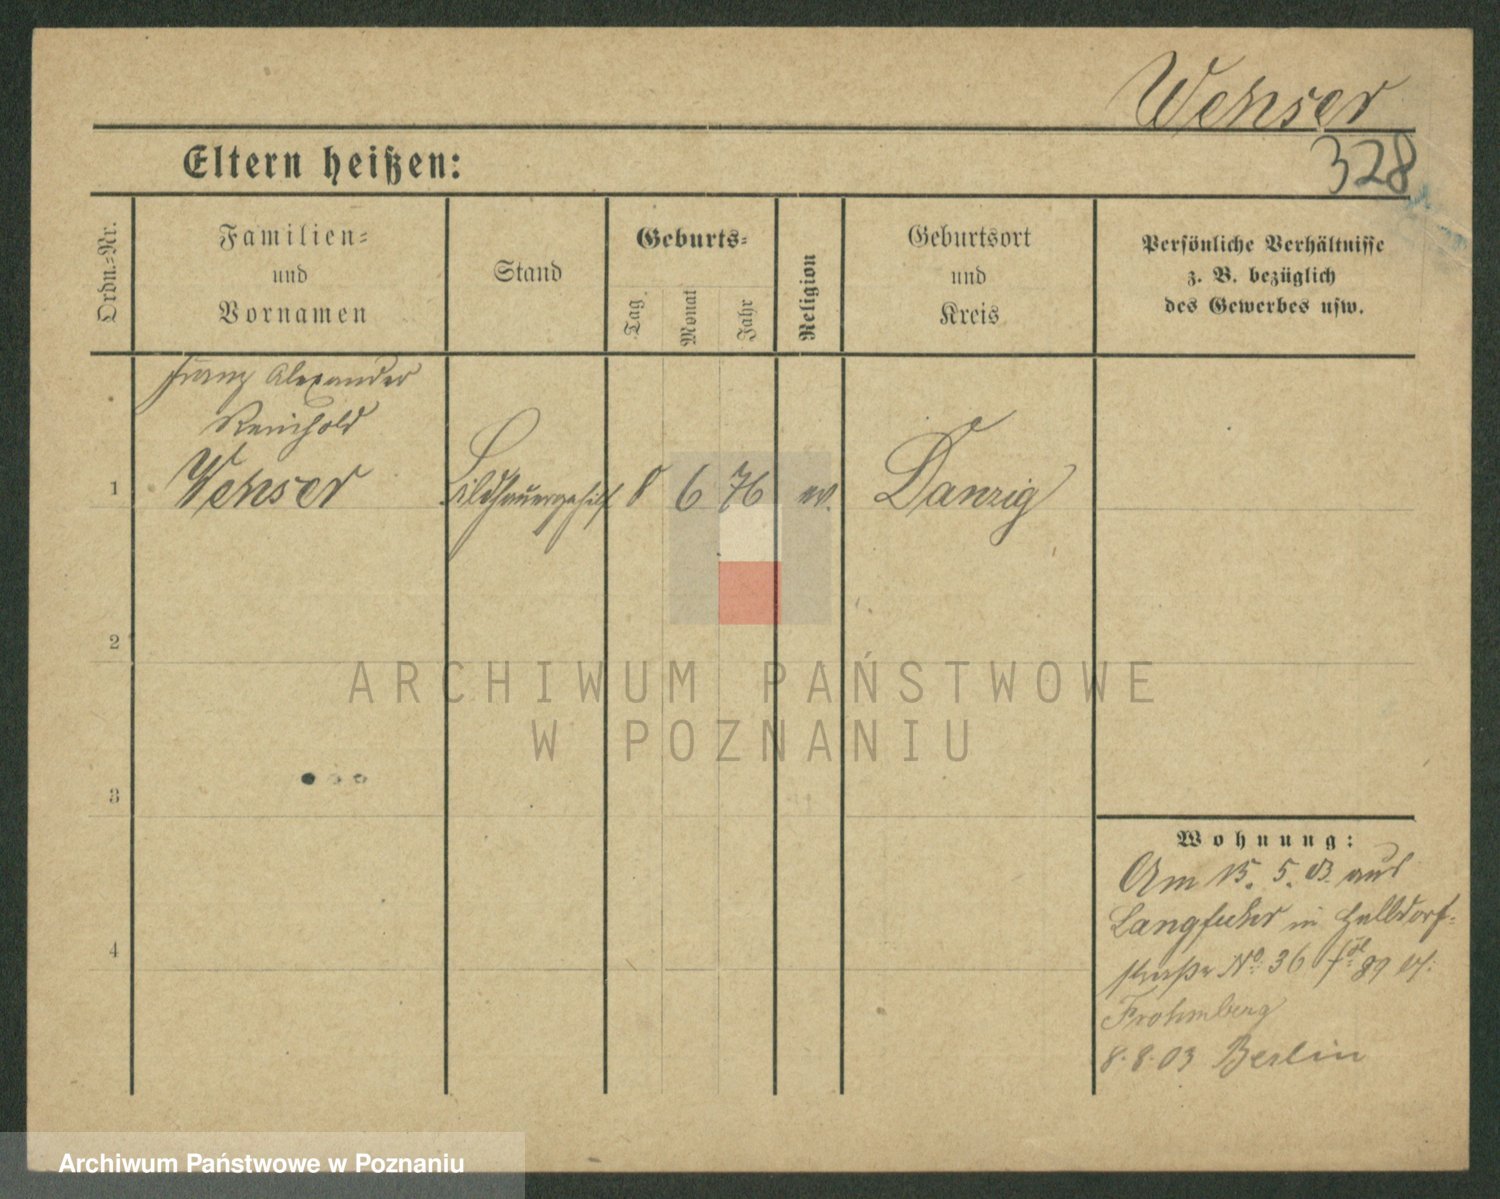 Wehser
Eltern heißen:
328
Ordn.-Nr.
Familien-
und
Vornamen
Stand
Geburts-
Tag
Monat
Jahr
Religion
Geburtsort
und
Kreis
Persönliche Verhältnisse
z. B. bezüglich
des Gewerbes usw.
Franz Alexander
Reinhold
1 Wehser Bildhauergehilf 8 6 76 ev. Danzig
2
ARCHIWUM PAŃSTWOWE
W POZNANIU
3
Wohnung:
Am 15. 5. 03 aus
Langfuhr in Halldorf-
straße No 36
Frohmberg
8.8.03 Berlin
4
Archiwum Państwowe w Poznaniu